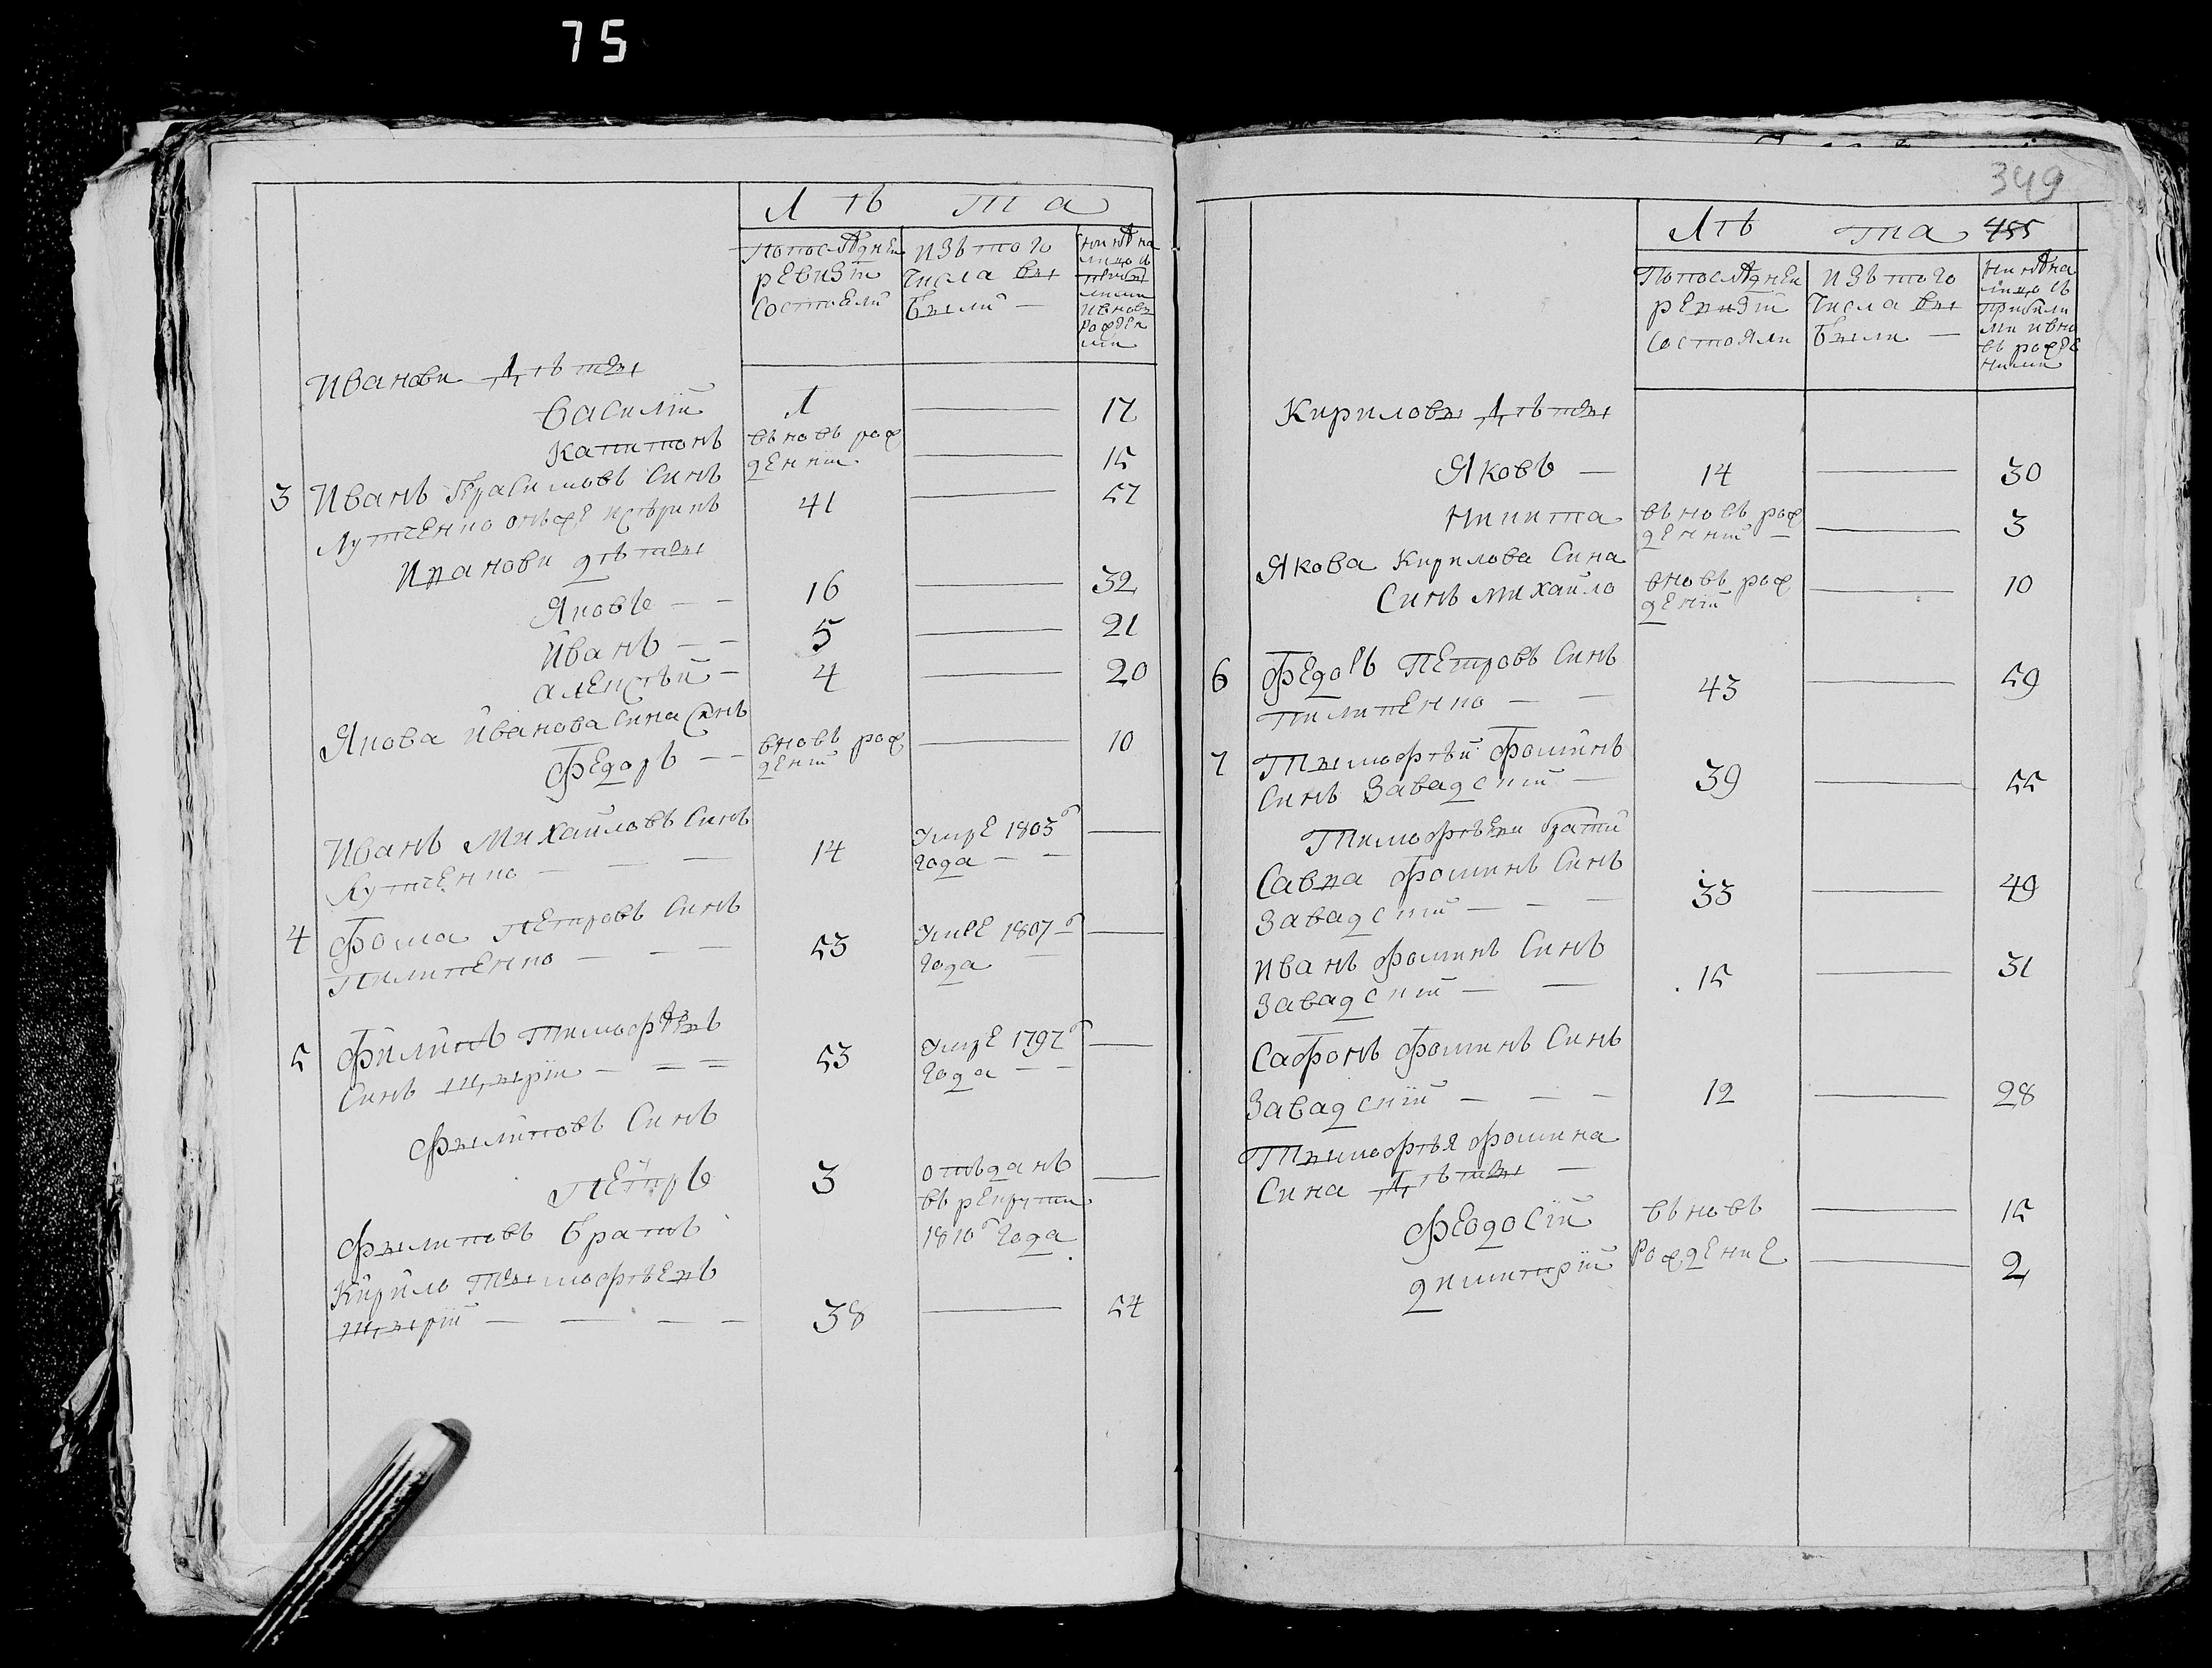 75
Лѣ та
Попослѣдней
ревизіи
состоели
изъ того
числа вы
были —
нинѣ на
лицо съ
рожден
Иванови дѣты
Василій 1 — 17
Капитонъ въновь рож
денній — 15
3 Иванъ Герасимовъ Синъ
Лутченко онъже 41 — 57
Иванови дѣты
Яковъ — — 16 — 32
Иванъ — — 5 — 21
Алексѣй — 4 — 20
Якова Иванова Сина Синъ
Федоръ — — вновь рож
деній — 10
Иванъ Михайловъ Синъ
Лутченко — — — 14 Умре 1803го
года — — —
4 Фома Петровъ Синъ
Пилипенко — — — 53 Умре 1807го
года —
5 Филипъ Тимофѣевъ
Синъ Щирій — — — 53 Умре 1797го
года — — —
Филиповъ Синъ
Петръ 3 отъданъ
въ рекрути
1810го года
Филиповъ братъ
Кирило Тимофѣевъ
Щирій — — — — 38 — 54
349
Лѣ та 455
Попослѣдней
ревизіи
состояли
изъ того
числа вы
были —
нинѣ на
лицо съ
прибили
ми ивно
въ рожде
ними
Кириловы дѣты
Яковъ — 14 — 30
Никита въновь рож
денній — 3
Якова Кирилова Сина
Синъ Михайло вновь рож
деній — 10
6 Федоръ Петровъ Синъ
Пилипенко — — 43 — 59
7 Тымофѣй Фоминъ
Синъ Завадскій — 39 — 55
Тимофѣеви братій
Савва Фоминъ Синъ
Завадскій — — — 33 — 49
Иванъ Фоминъ Синъ
Завадскій — — 15 — 31
Сафонъ Фоминъ Синъ
Завадскій — — — 12 — 28
Тымофѣя Фомина
Сина дѣты —
Феодосій въновь — 15
Димитрій рожденіе — 2